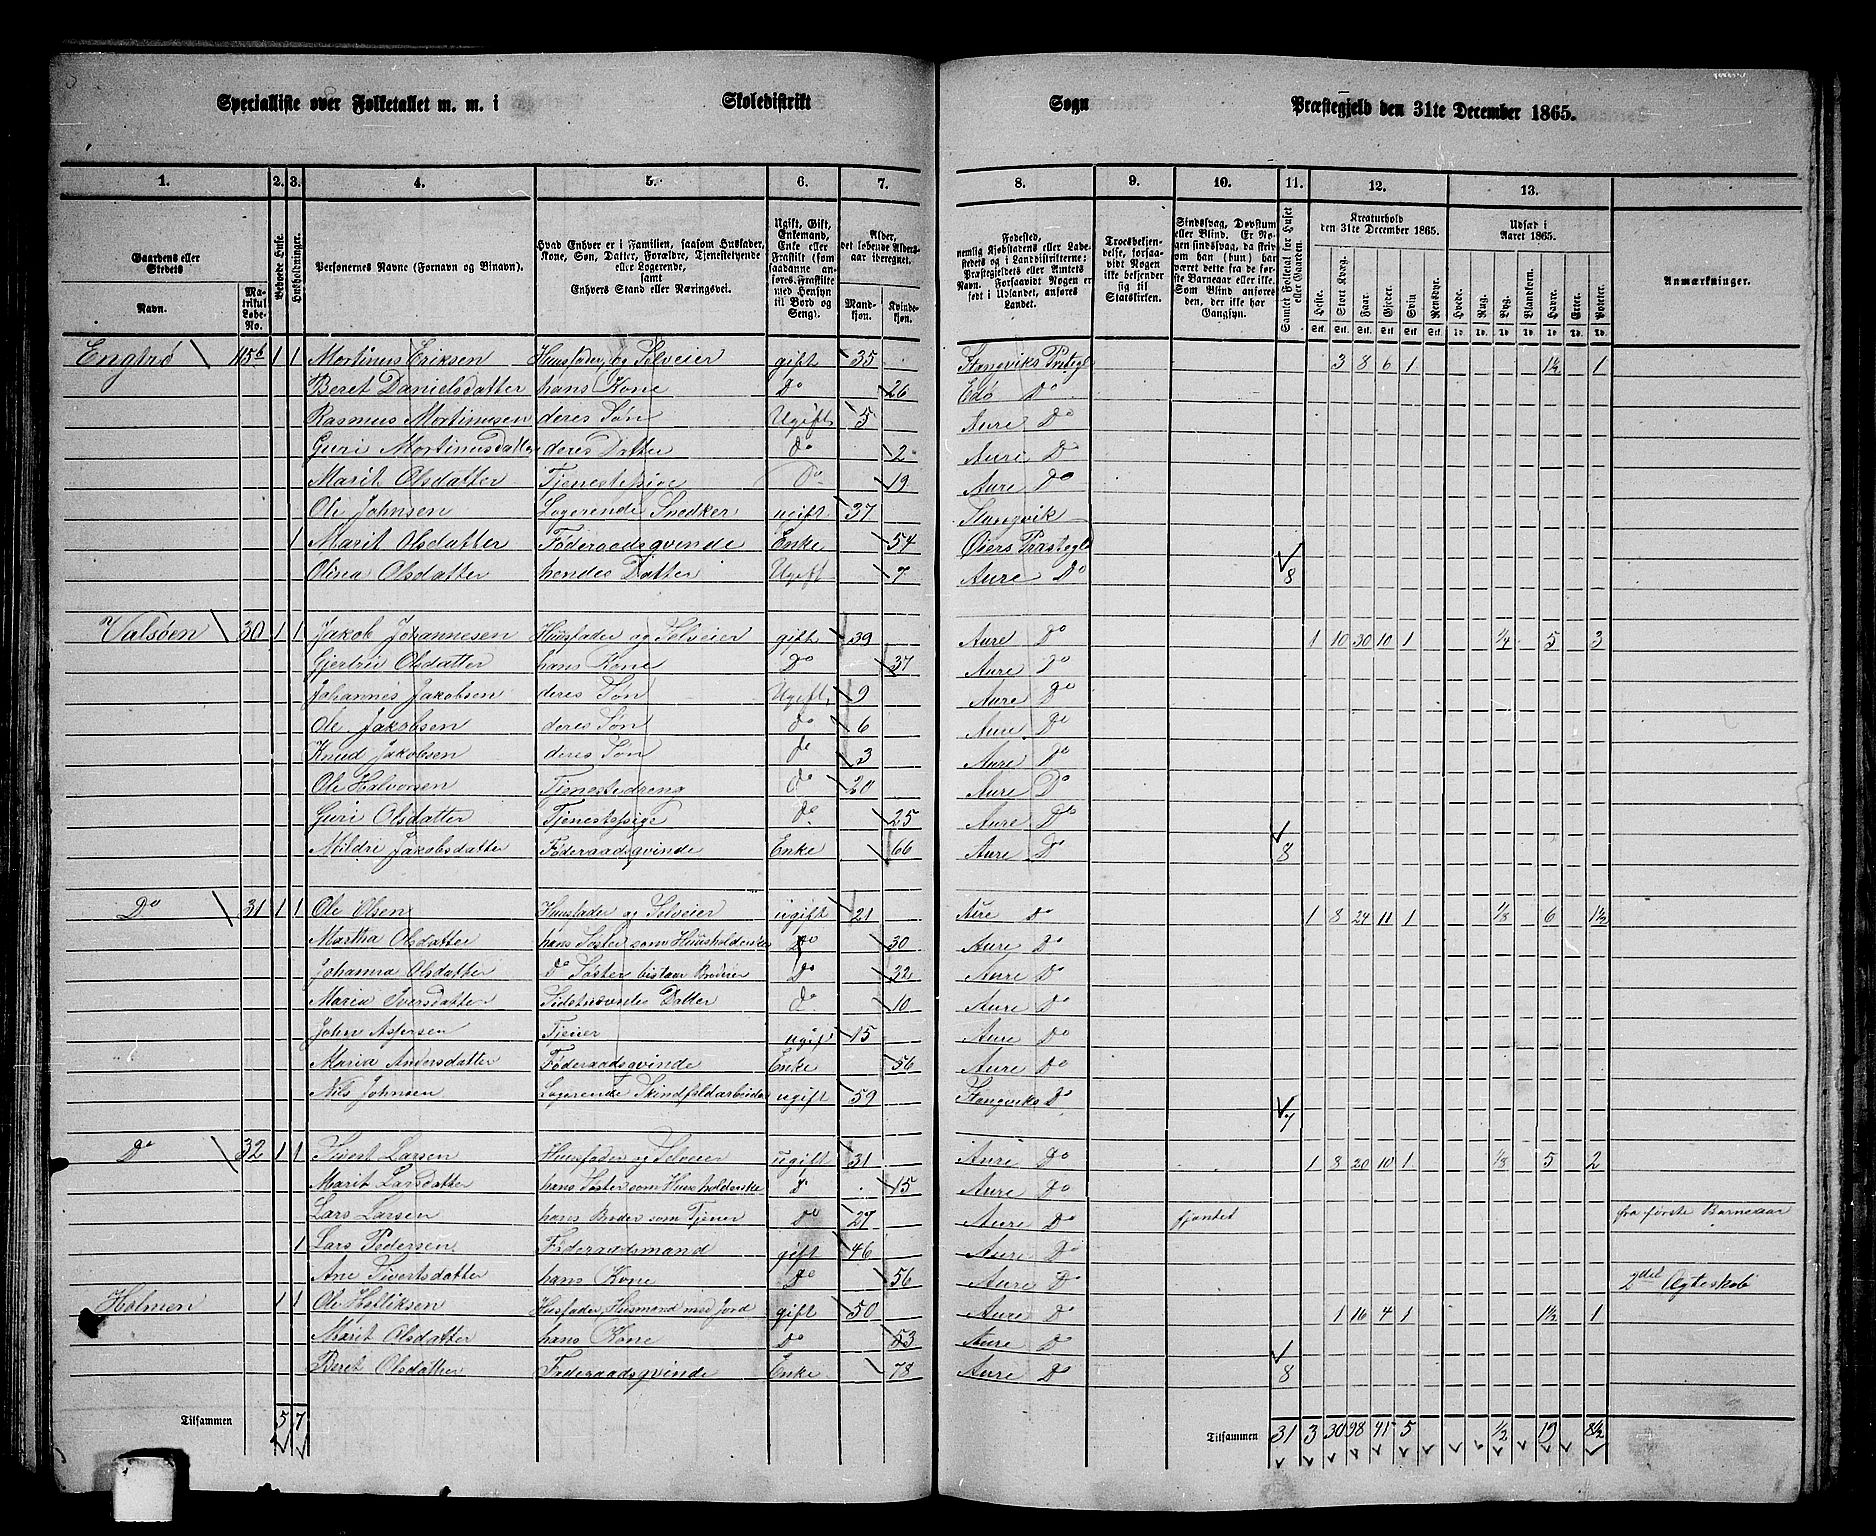 Specialliste over Folketallet m. m. i Skoledistrikt Sogn Præstegjeld den 31te December 1865.
1. 2. 3. 4. 5. 6. 7. 8. 9. 10. 11. 12. 13.
Gaardens eller Stedets
Navn.
Matrikul Løbe-No.
Bebode Huse.
Husholdninger.
Personernes Navne (Fornavn og Binavn).
Hvad Enhver er i Familien, saasom Husfader, Kone, Søn, Datter, Forældre, Tjenestetyende eller Logerende, samt Enhvers Stand eller Næringsvei.
Ugift, Gift, Enkemand, Enke eller Fraskilt (som saadanne anføres Fraskilte med Hensyn til Bord og Seng).
Alder, det løbende Aldersaar iberegnet.
Mandkjøn. Kvindekjøn.
Fødested, nemlig Kjøbstadens eller Ladestedets og i Landdistrikterne: Præstegjeldets eller Amtets Navn. Forsaavidt Nogen er født i Udlandet, anføres Landet.
Troesbekjendelse, forsaavidt Nogen ikke bekjender sig til Statskirken.
Sindssvag, Døvstum eller Blind. Er Nogen sindssvag, da skrives om han (hun) har været dette fra de første Barneaar eller ikke. Som Blind anføres den, der ikke har Gangsyn.
Samlet Folketal for Huset eller Gaarden.
Kreaturhold den 31te December 1865.
Heste. Stort Kvæg. Faar. Gjeder. Svin. Rensdyr.
Udsæd i Aaret 1865.
Hvede. Rug. Byg. Blandkorn. Havre. Erter. Poteter.
Anmærkninger.
Engdrø 115b 1 1 Mortinus Eriksen Huusfader og Selveier gift 35 Stangviks Prstgl 3 8 6 1 1½ 1
Beret Danielsdatter hans Kone Do 26 Edø Do
Rasmus Mortinusen deres Søn Ugift 5 Aure Do
Guri Mortinusdatter deres Datter do 2 Aure Do
Marit Olsdatter Tjenestepige Do 19 Aure Do
Ole Johnsen Logerende Snedker ugift 37 Stangvik
1 Marit Olsdatter Føderaadsqvinde Enke 54 Præstegl
Olina Olsdatter hendes Datter Ugift 7 Aure Do 8
Valsøen 30 1 1 Jakob Johannesen Huusfader og Selveier gift 39 Aure Do 1 10 30 10 1 ¼ 5 3
Gjertru Olsdatter hans Kone Do 37 Aure Do
Johannes Jakobsen deres Søn Ugift 9 Aure Do
Ole Jakobsen deres Søn do 6 Aure Do
Knud Jakobsen deres Søn do 3 Aure Do
Ole Halvorsen Tjenestedreng do 20 Aure Do
Guri Olsdatter Tjenestepige do 25 Aure Do
Mildri Jakobsdatter Føderaadsqvinde Enke 66 Aure Do 8
Do 31 1 1 Ole Olsen Huusfader og Selveier ugift 21 Aure Do 1 8 24 11 1 ⅛ 6 1½
Martha Olsdatter hans Søster som Huusholderske Do 30 Aure Do
Johanna Olsdatter Do Søster bistaar Broder Do 32 Aure Do
Maria Iversdatter Sidstnævntes Datter do 10 Aure Do
John Asfersen Tjener ugift 15 Aure Do
Maria Andersdatter Føderaadsqvinde Enke 56 Aure Do
Nils Johnsen Logerende Skindfeldarbeider ugift 59 Stangviks Do 7
Do 32 1 1 Sivert Larsen Huusfader og Selveier ugift 31 Aure Do 1 8 20 10 1 ⅛ 5 2
Marit Larsdatter hans Søster som Huusholderske Do 15 Aure Do
Lars Larsen hans Broder som Tjener do 27 Aure Do fjantet fra første Barneaar
1 Lars Pedersen Føderaadsmand gift 46 Aure Do
Ane Sivertsdatter hans Kone Do 56 Aure Do 2det Ægteskab
Holmen 1 1 Ole Helliksen Husfader, Husmand med Jord gift 50 Aure Do 1 16 4 1 1½ 1
Marit Olsdatter hans Kone Do 53 Aure Do
Beret Olsdatter Føderaadsqvinde Enke 78 Aure Do 8
Tilsammen 5 7 Tilsammen 31 3 30 98 41 5 ½ 19 8½